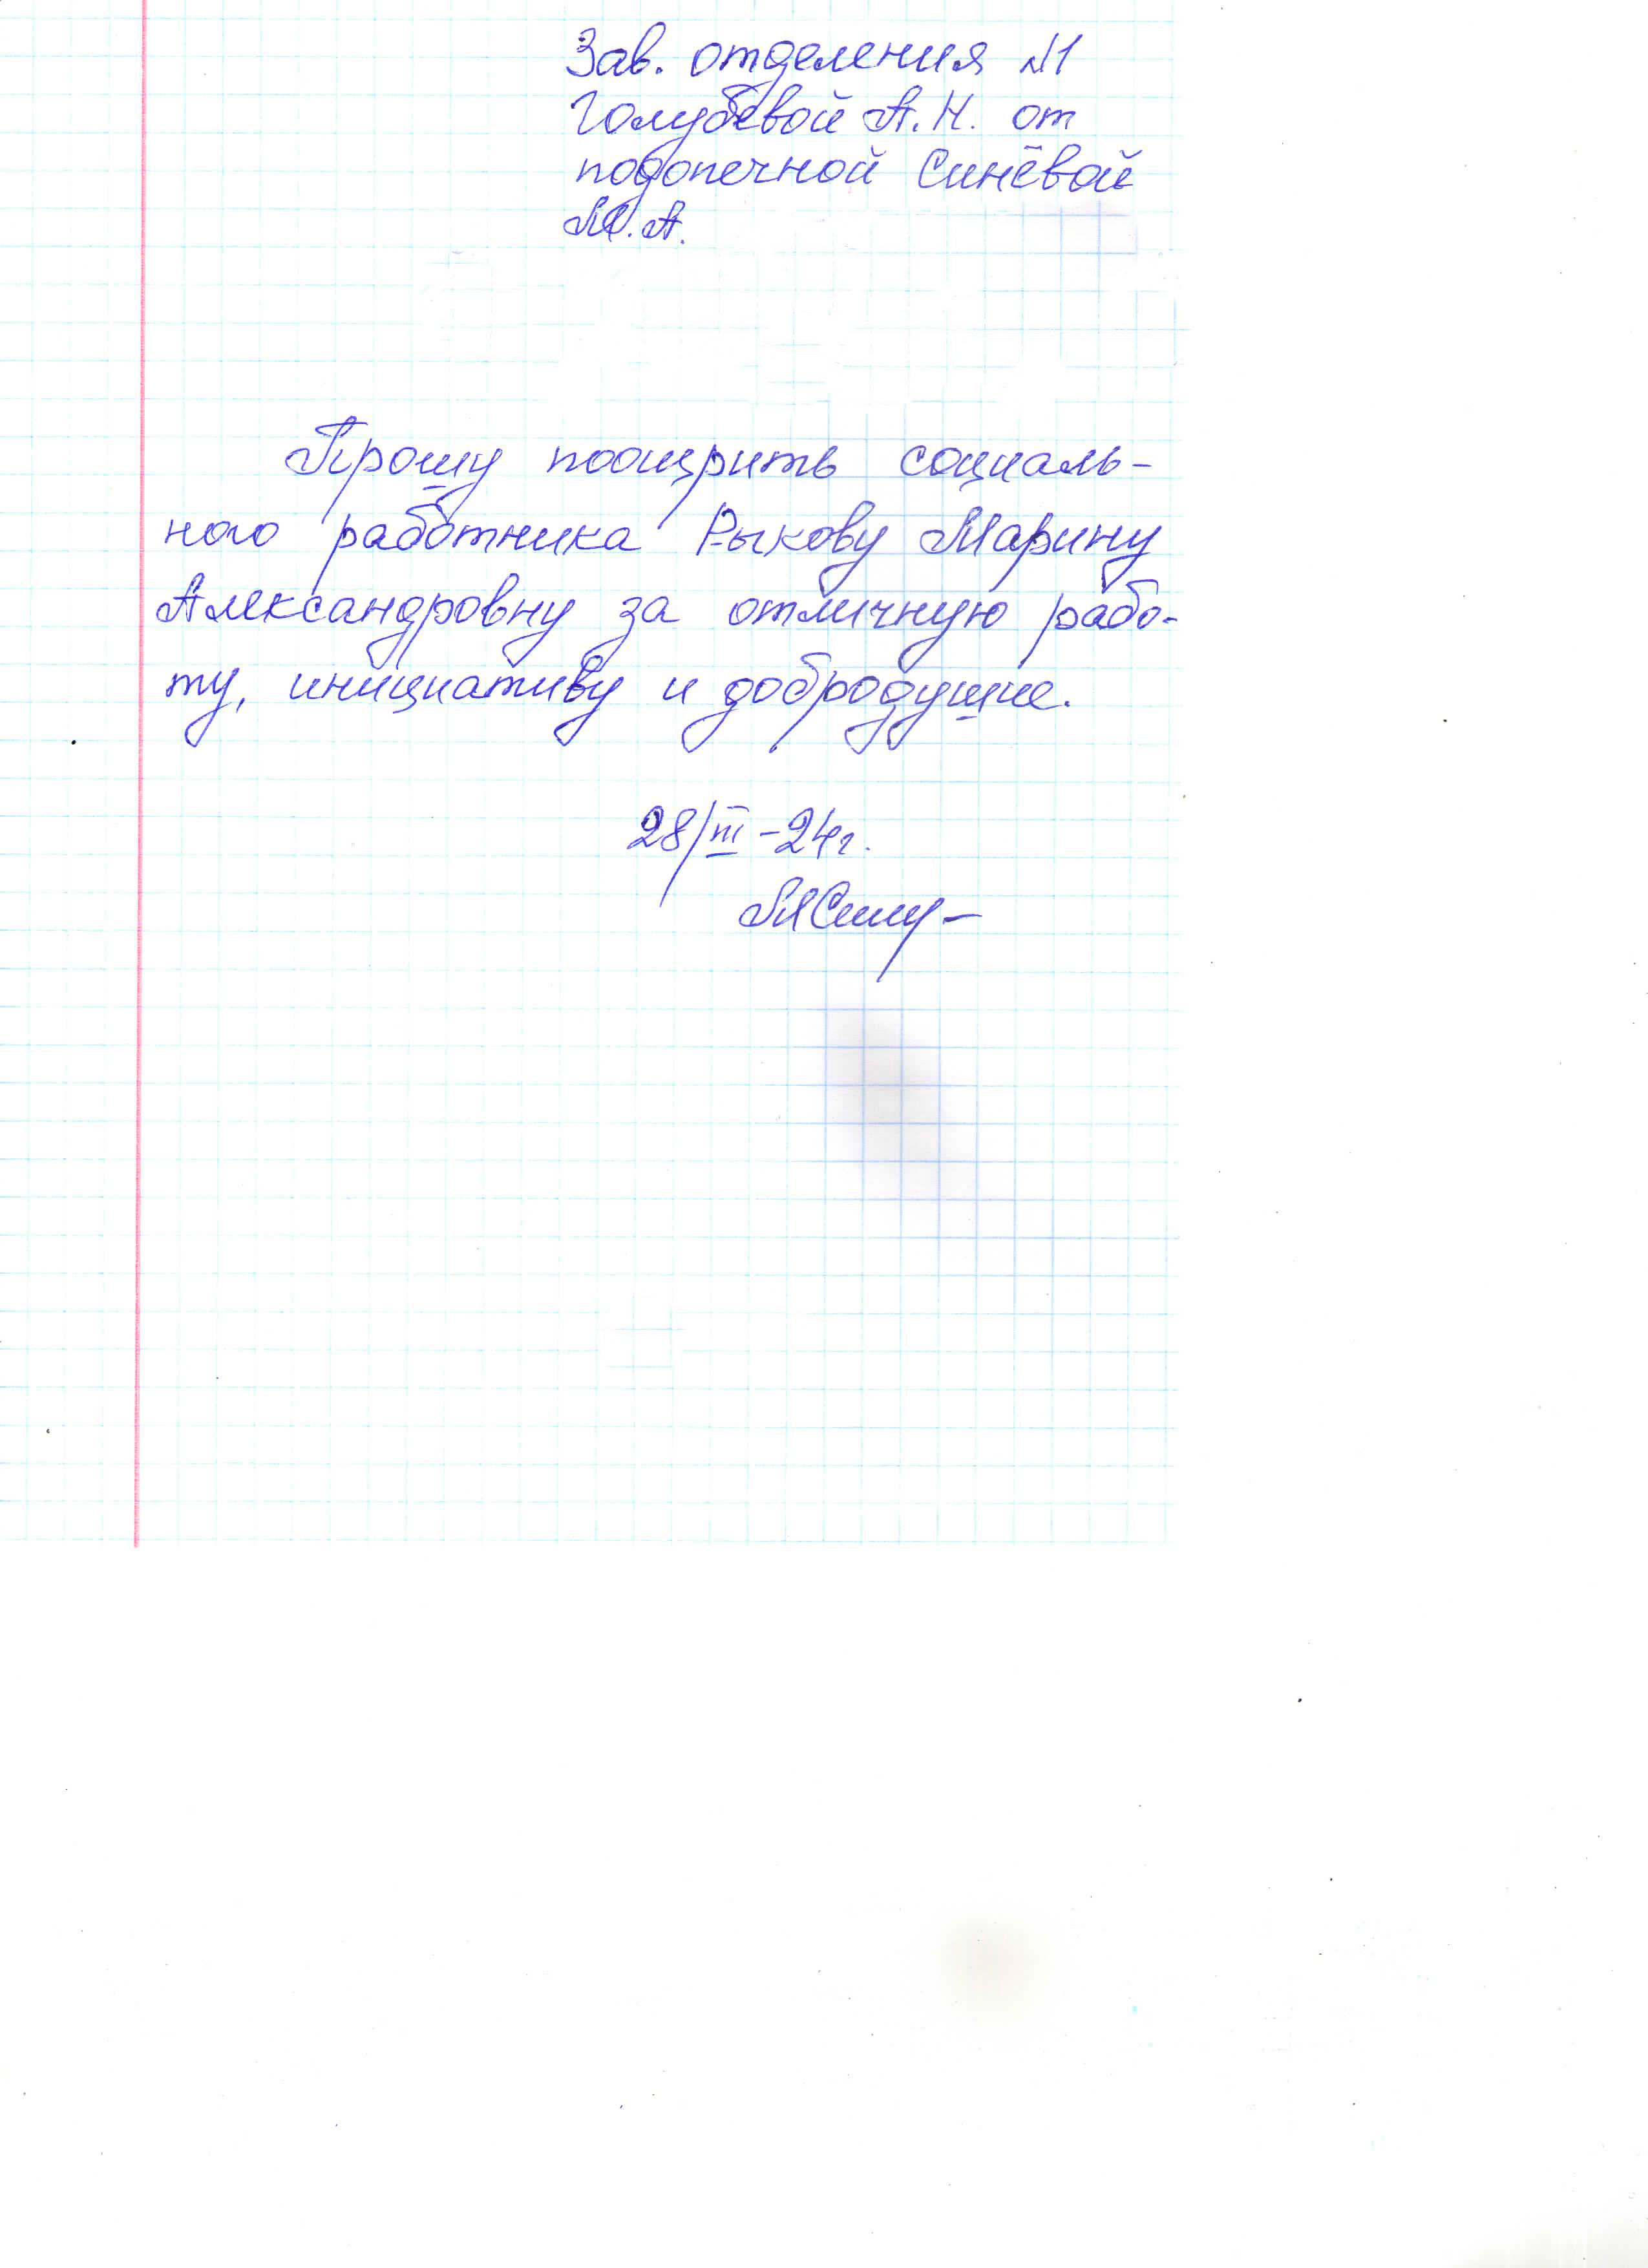 Зав. отделения №1
Голубевой А.Н. от
подопечной Синёвой
М.А.
Прошу поощрить социаль-
ного работника Рыкову Марину
Александровну за отличную рабо-
ту, инициативу и добродушие.
28/III-24г.